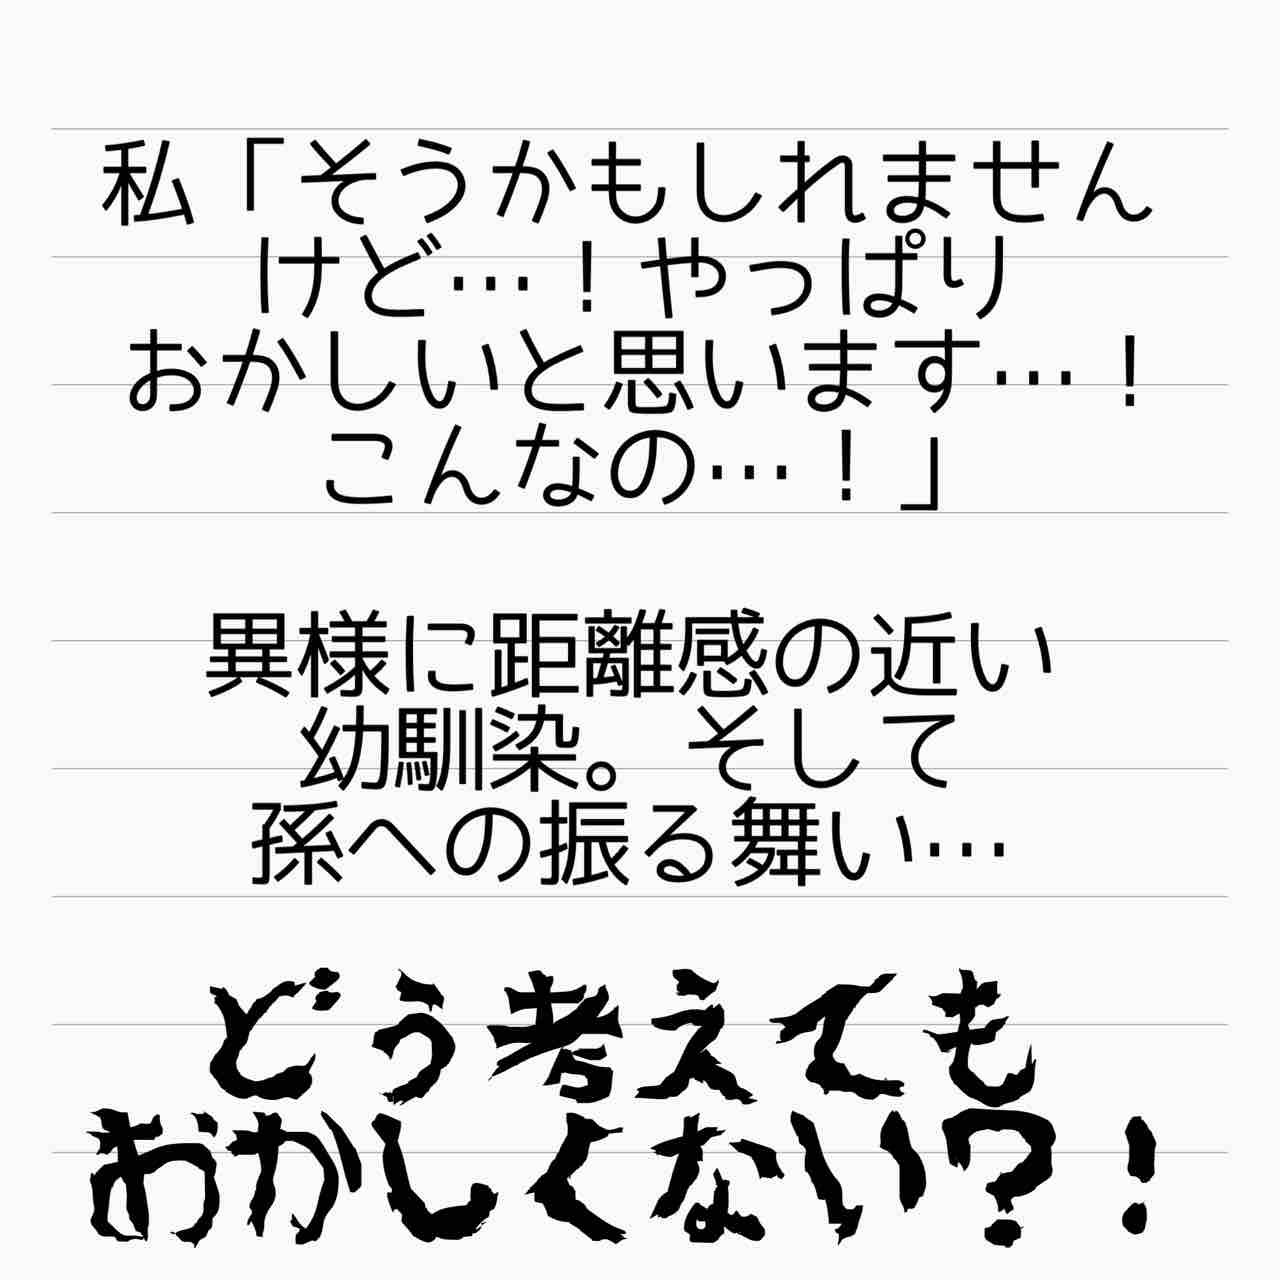 私「そうかもしれません
けど…！やっぱり
おかしいと思います…！
こんなの…！」
異様に距離感の近い
幼馴染。そして
孫への振る舞い…
どう考えても
おかしくない？！